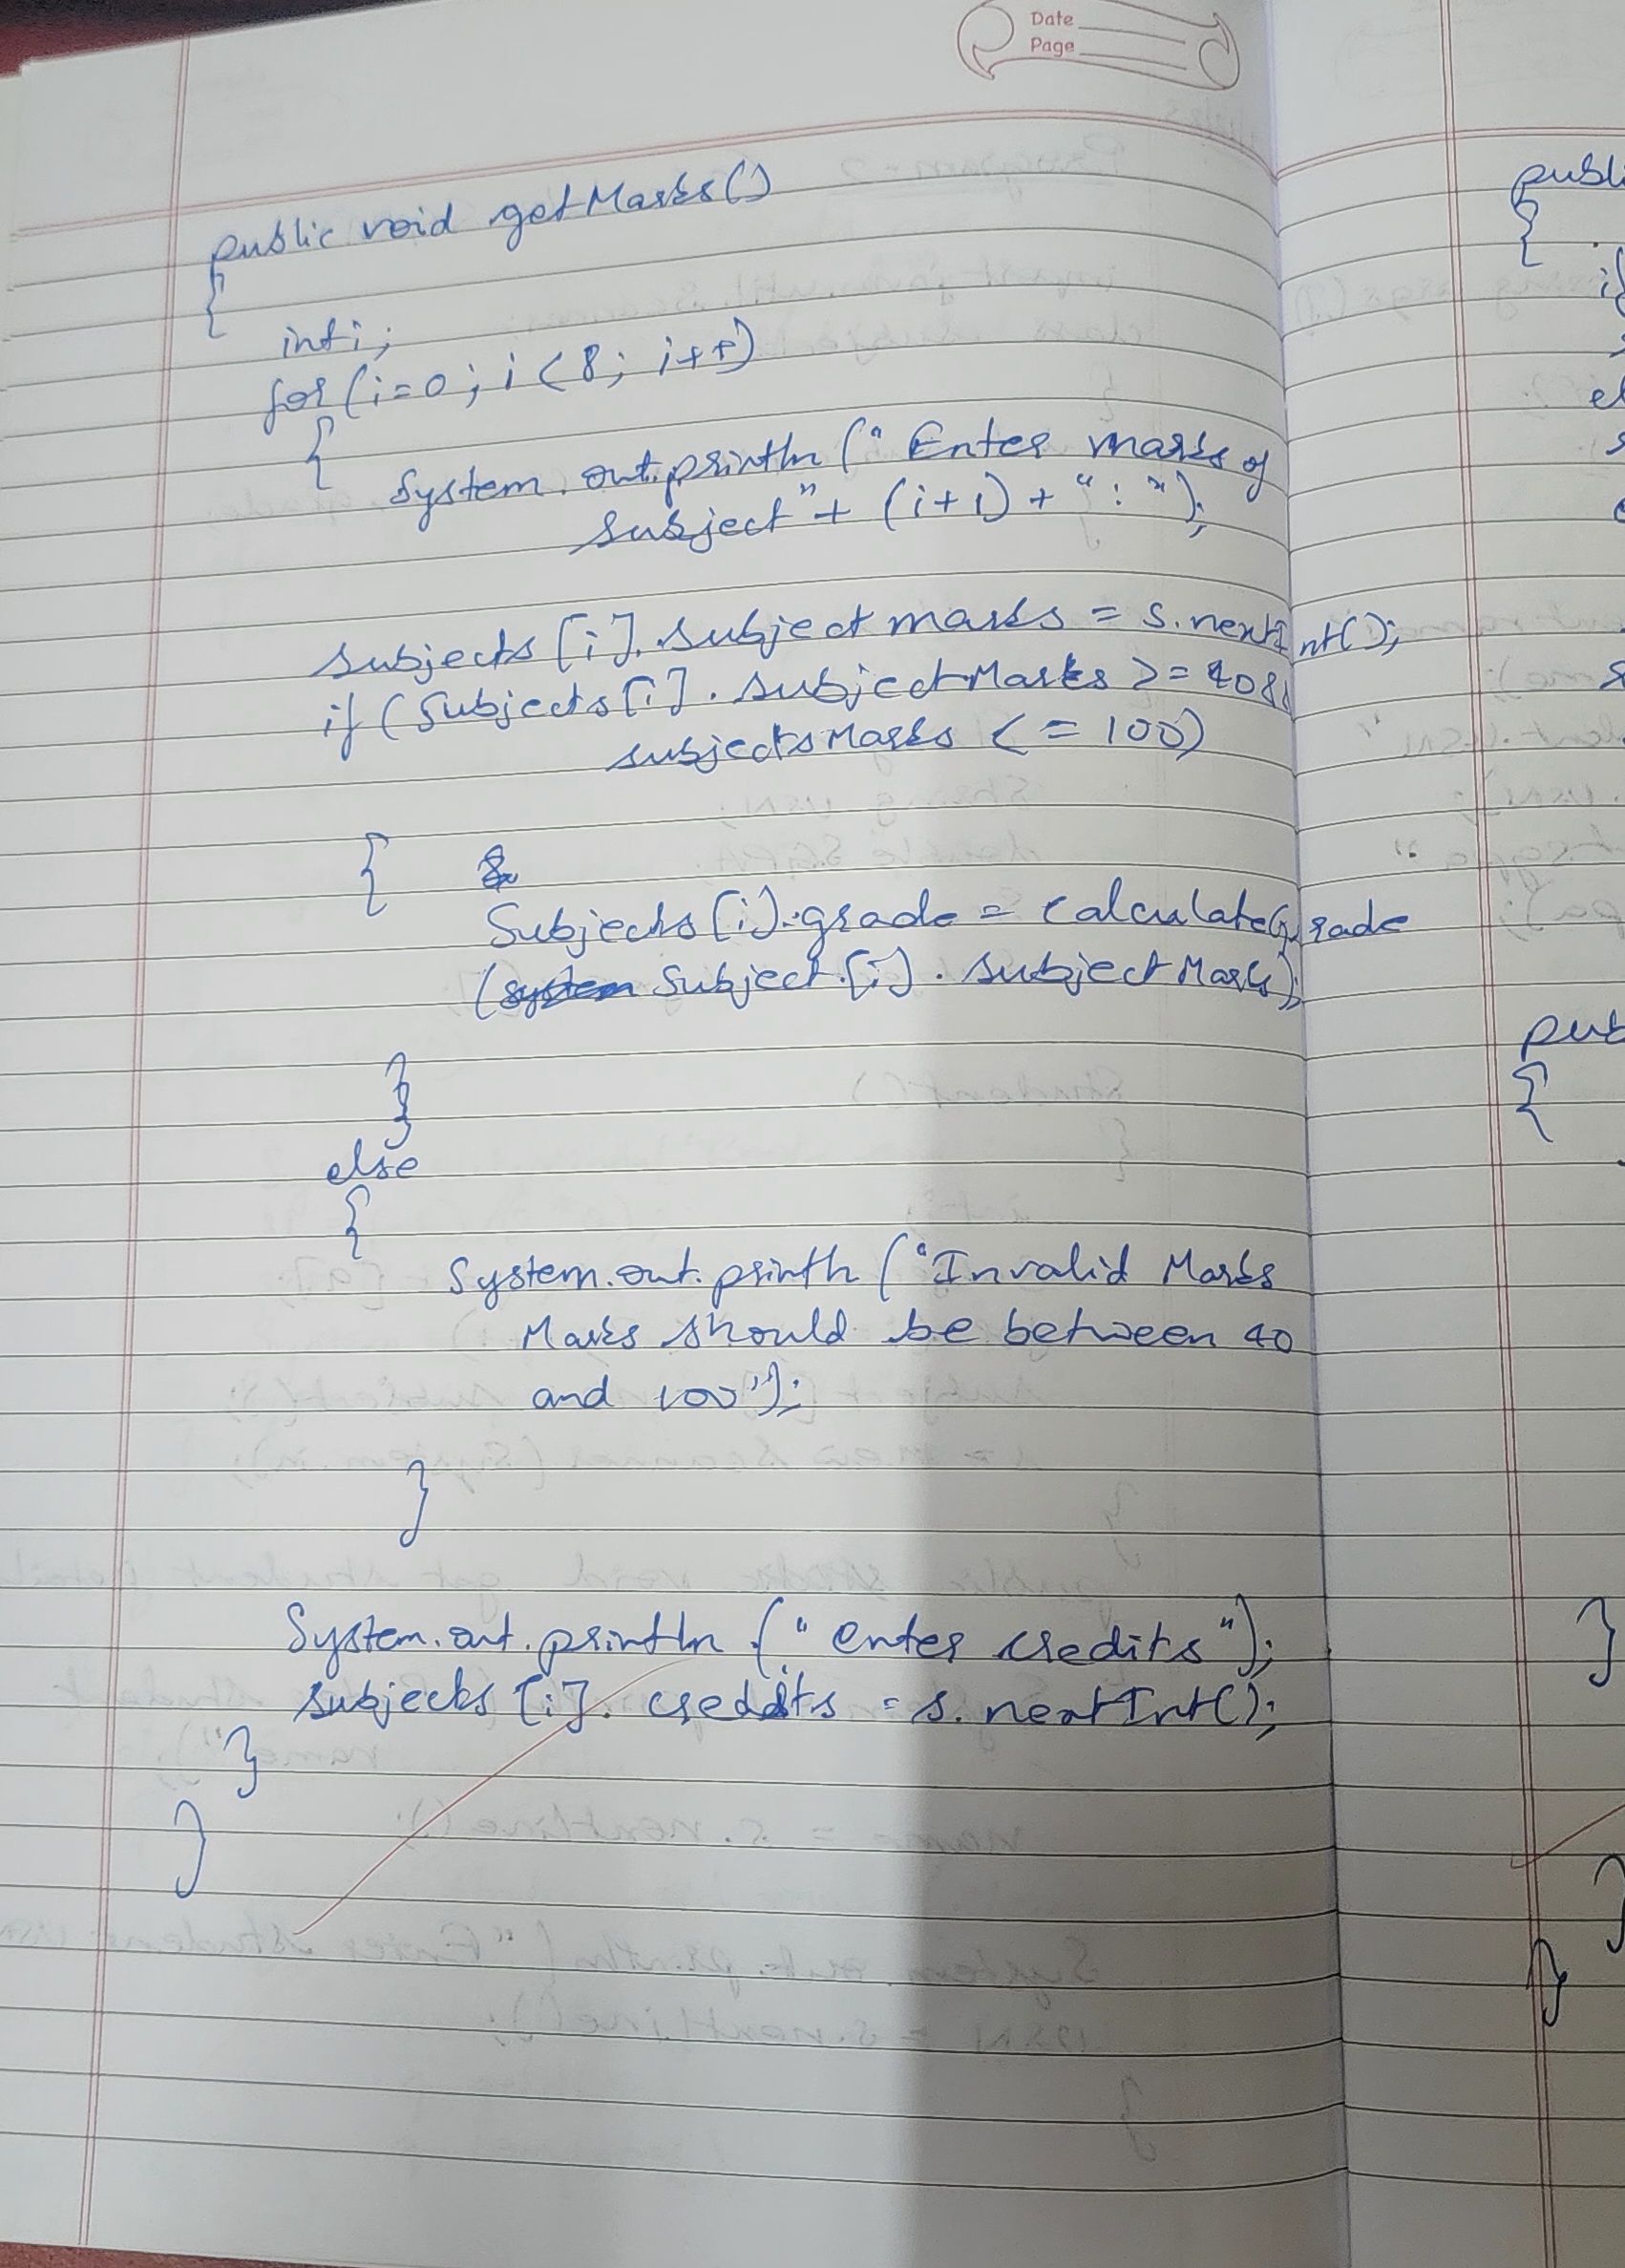 Date
Page
public void getMarks()
{
int i;
for (i=0; i<8; i++)
{
System.out.println ("Enter marks of
subject" + (i+1) + ":");
subjects [i]. subject marks = s.nextInt();
if (Subjects[i]. subjectMarks >= 40&&
subjectsMarks <= 100)
{
Subjects[i].grade = calculateGrade
(system Subject.[i]. subjectMarks);
}
else
{
System.out.println ("Invalid Marks
Marks should be between 40
and 100");
}
System.out.println ("enter credits");
subjects [i]. credits = s. nextInt();
}
}
publi
{
i
el
pub
{
}
}
}